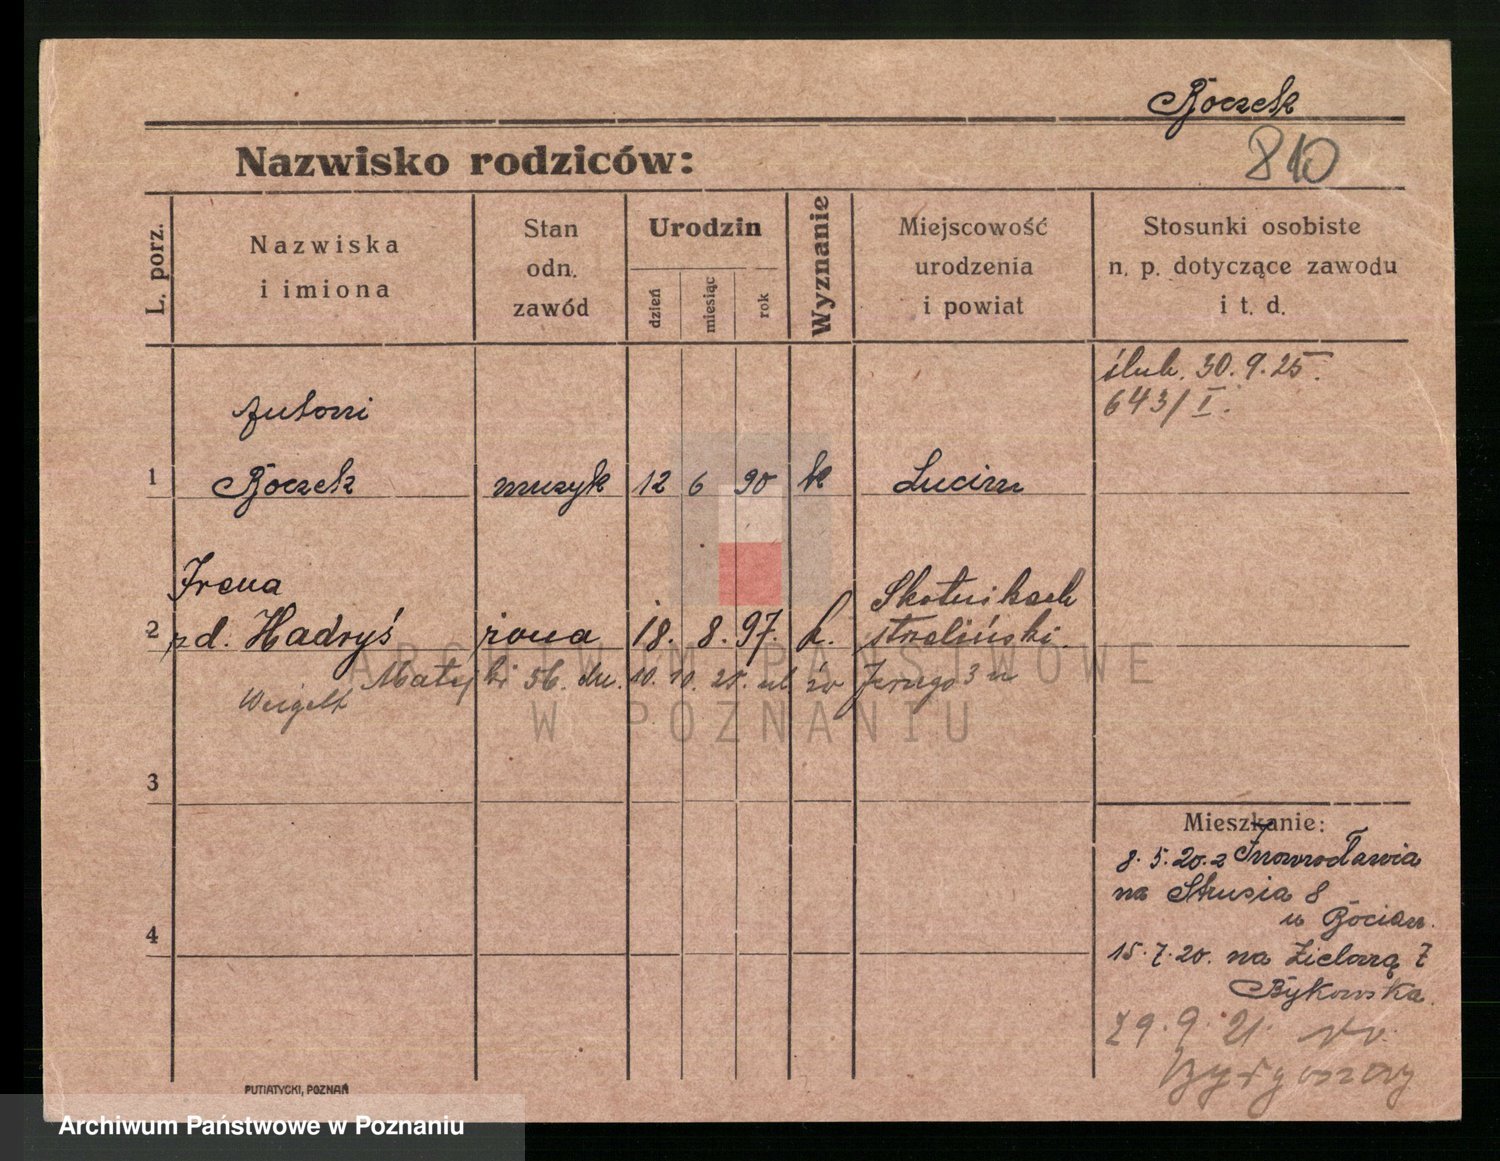 Roczek
810
Nazwisko rodziców:
L. porz.
Nazwiska
i imiona
Stan
odn.
zawód
Urodzin
dzień
miesiąc
rok
Wyznanie
Miejscowość
urodzenia
i powiat
Stosunki osobiste
n. p. dotyczące zawodu
i t. d.
ślub. 30. 9. 25.
643/I.
Antoni
1 Roczek muzyk 12 6 90 k Lucim
Irena
Skotnikach
2 zd. Hadryś żona 18. 8. 97. k. strzeliński
Matejki 56. dn. 10. 10. 21. ul św Jerzego 3 u
Weigelt
ARCHIWUM PAŃSTWOWE
W POZNANIU
3
Mieszkanie:
8. 5. 20. z Inowrocławia
na Strusia 8
u Bocian.
4
15. 7. 20. na Zieloną 7
Bykowska.
29. 9. 21.
Bydgoszczy
PUTIATYCKI, POZNAŃ
Archiwum Państwowe w Poznaniu